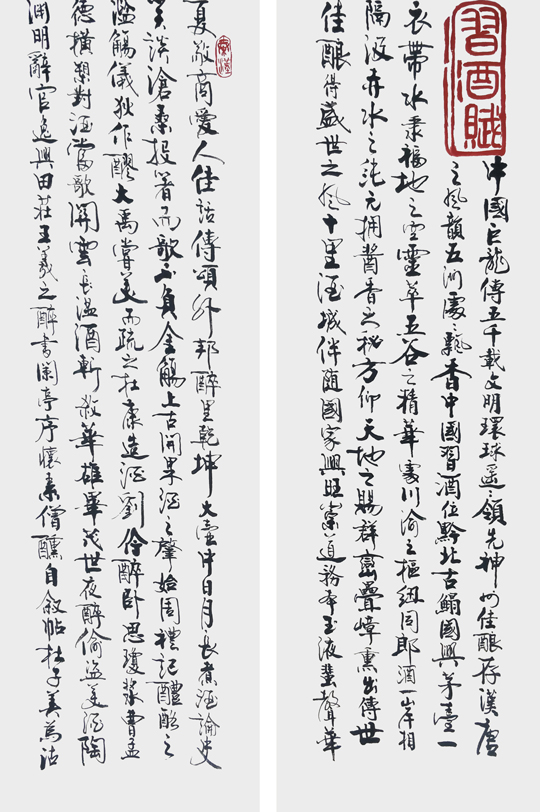 習酒賦
中國巨龍傳五千載文明環球遥遥領先神州佳釀存漢唐
之風韻五洲處處飄香中國習酒位黔北古鰼國與茅臺一
衣帶水秉福地之空靈萃五谷之精華處川渝之樞紐同郎酒一岸相
隔汲赤水之純元拥醬香之秘方仰天地之賜群巒疊嶂熏出傳世
佳釀得盛世之風十里酒城伴随國家興旺崇道務本玉液蜚聲華
夏敬商愛人佳話傳頌外邦醉里乾坤大壺中日月長煮酒論史
笑談滄桑投箸而歌不負金觴上古開果酒之肇始周禮記醴酪之
濫觴儀狄作醪大禹嘗美而疏之杜康造酒劉伶醉卧思瓊漿曹孟
德橫槊對酒當歌關雲長溫酒斬殺華雄畢茂世夜醉偷盗美酒陶
渊明辭官逸興田莊王羲之醉書蘭亭序懷素僧醺自叙帖杜子美為沽